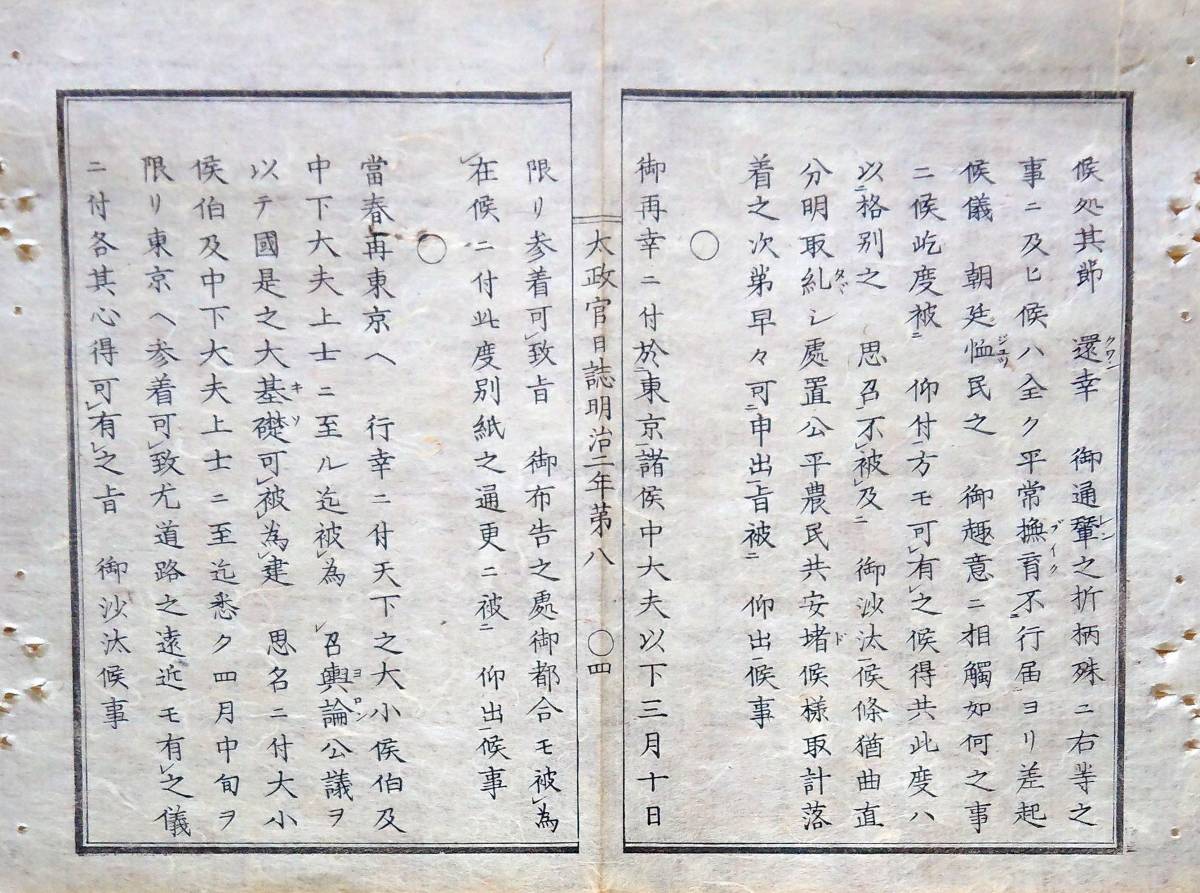 候処其節　還幸　御通輦之折柄殊ニ右等之
事ニ及ヒ候ハ全ク平常撫育不行届ヨリ差起
候儀　朝廷恤民之　御趣意ニ相觸如何之事
ニ候屹度被　仰付方モ可有之候得共此度ハ
以格別之　思召不被及　御沙汰候條猶曲直
分明取糺シ處置公平農民共安堵候様取計落
着之次第早々可申出旨被　仰出候事
〇
御再幸ニ付於東京諸侯中大夫以下三月十日
太政官日誌明治二年第八　〇四
限リ参着可致旨　御布告之處御都合モ被為
在候ニ付此度別紙之通更ニ被　仰出候事
〇
當春再東京ヘ　行幸ニ付天下之大小侯伯及
中下大夫上士ニ至ル迄被為　召輿論公議ヲ
以テ國是之大基礎可被為建　思名ニ付大小
侯伯及中下大夫上士ニ至迄悉ク四月中旬ヲ
限リ東京ヘ参着可致尤道路之遠近モ有之儀
ニ付各其心得可有之旨　御沙汰候事